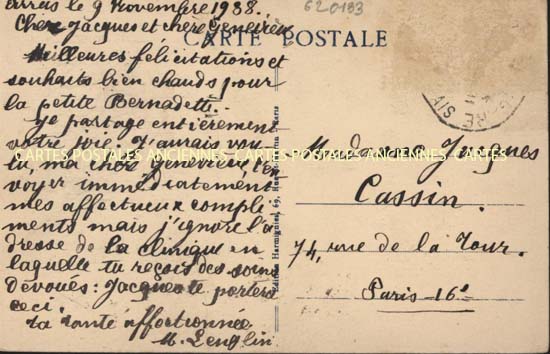 Arras le 9 Novembre 1938.
Cher Jacques et chère Geneviève
Meilleures félicitations et
souhaits bien chauds pour
la petite Bernadette.
Je partage entièrement
votre joie. J'aurais voulu,
ma chère Geneviève, t'en
voyer immédiatement
mes affectueux compli-
ments mais j'ignore l'a
dresse de la clinique en
laquelle tu reçois des soins
dévoués: Jacques te portera
ceci.
ta tante affectionnée
M. Lenglin
620133
CARTE POSTALE
CARTES POSTALES ANCIENNES - CARTES POSTALES ANCIENNES - CARTES POSTALES ANCIENNES - CARTES
Madame Jacques
Cassin.
74, rue de la Tour.
Paris 16e